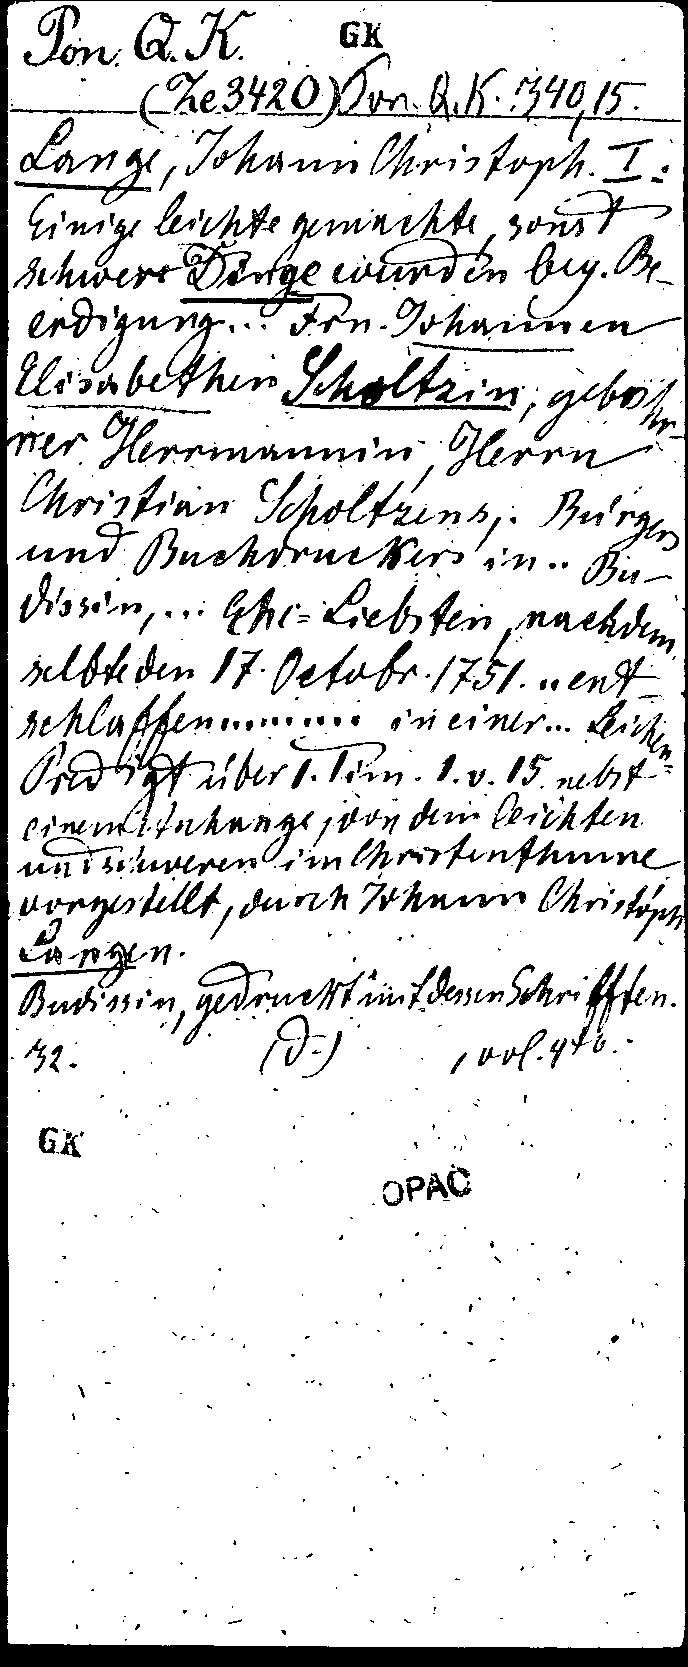 Pon. Q. K. GK
(Ze 3420) Pon. Q. K. 340,15.
Lange, Johann Christoph. I:
Einige leichte gemachte, sonst
schwere Dinge wurden bey. Be-
erdigung... Frn. Johannen
Elisabethen Scholtzin, gebohr-
ner Herrmannin, Herrn
Christian Scholtzens,. Bürgers
und Buchdruckers in.. Bu-
dissin,... Ehe=Liebsten, nachdem
selbte den 17. Octobr. 1751... ent-
schlaffen......... in einer... Leichen-
Predigt über 1. Tim. 1. v. 15. nebst
einem Anhange, von dem leichten
und schweren im Christenthume
vorgestellt, durch Johann Christoph
Langen.
Budissin, gedruckt mit dessen Schrifften.
32. (d.) , vol. 4to.
GK
OPAC